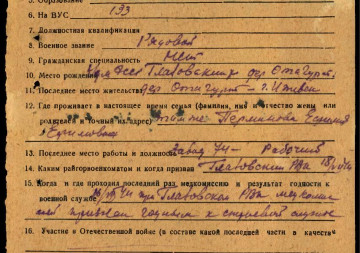 5. Образование
6. На ВУС 133
7. Должностная квалификация
8. Военное звание Рядовой
9. Гражданская специальность Нет
10. Место рождения Удм АССР Глазовский р дер Отогурт
11. Последнее место жительства дер Отогурт – г. Ижевск
12. Где проживает в настоящее время семья (фамилия, имя и отчество жены или
родителей и точный их адрес) там же Перминова Ксения
Ефимовна
13. Последнее место работы и должность Завод 74 – Рабочий
14. Каким райгорвоенкоматом и когда призван Глазовский РВК
15. Когда и где проходил последний раз медкомиссию и результат годности к
военной службе при Глазовском РВК медкомис
сией признан годным к строевой службе
16. Участие в Отечественной войне (в составе какой последней части в качестве